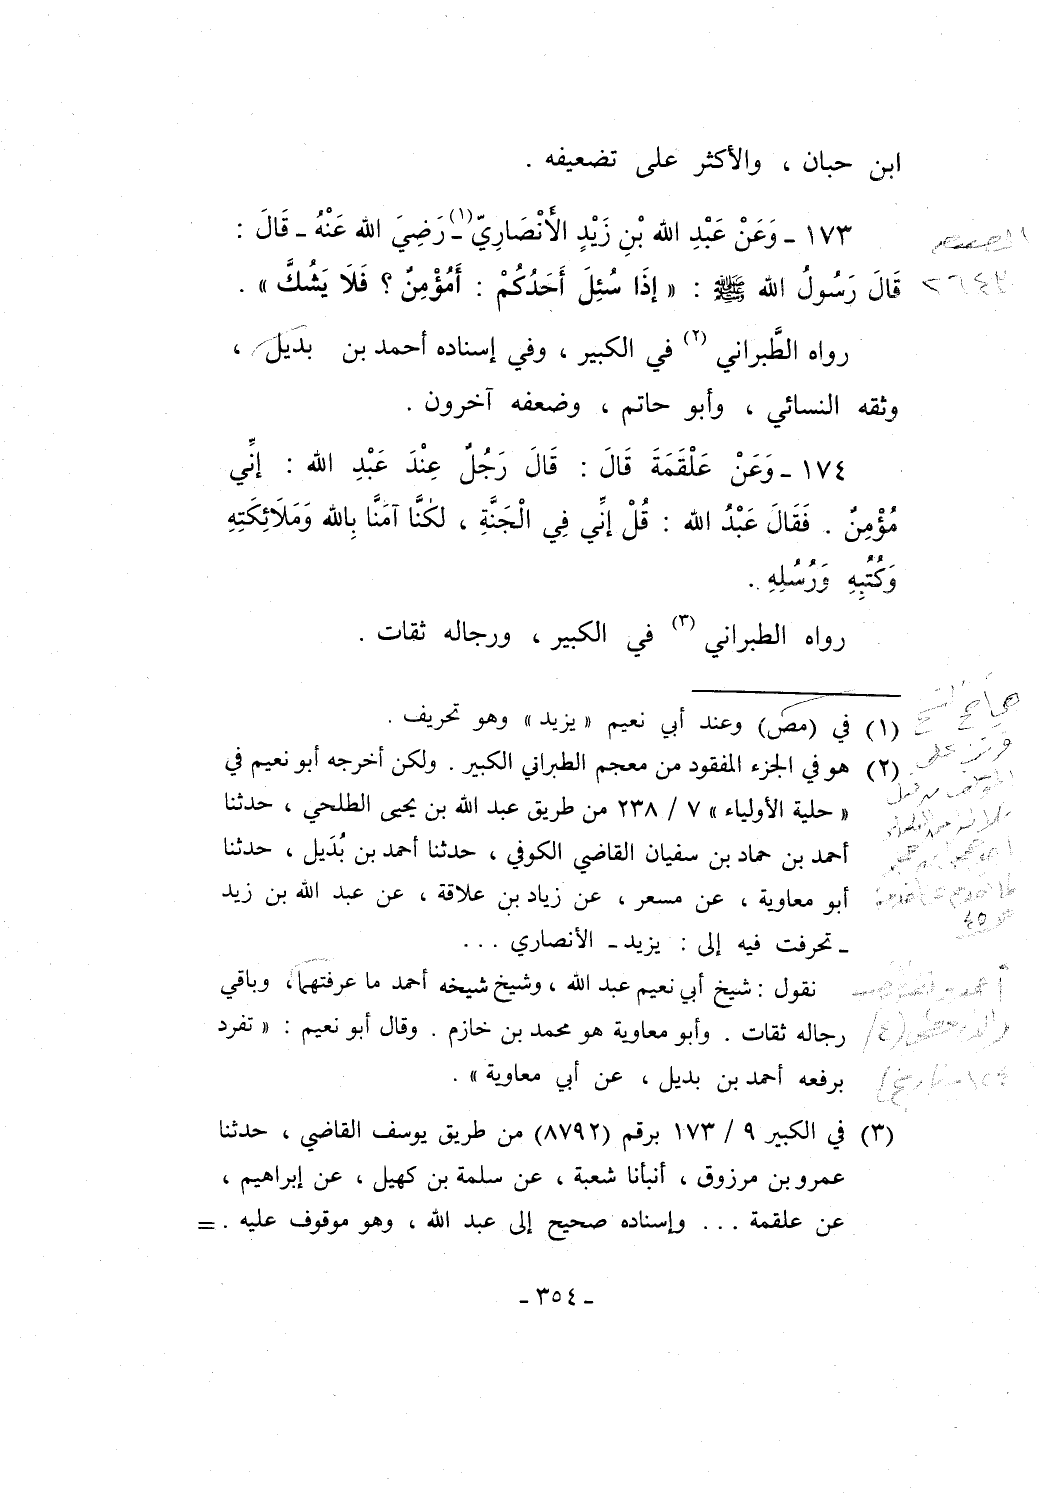 ابن حبان ، والأكثر على تضعيفه .
١٧٣ ـ وَعَنْ عَبْدِ الله بْنِ زَيْدٍ الأَنْصَارِيّ (١) ـ رَضِيَ الله عَنْهُ ـ قَالَ :
قَالَ رَسُولُ الله ﷺ : « إذَا سُئِلَ أَحَدُكُمْ : أَمُؤْمِنٌ ؟ فَلَا يَشُكَّ » .
رواه الطَّبراني (٢) في الكبير ، وفي إسناده أحمد بن بديل ،
وثقه النسائي ، وأبو حاتم ، وضعفه آخرون .
١٧٤ ـ وَعَنْ عَلْقَمَةَ قَالَ : قَالَ رَجُلٌ عِنْدَ عَبْدِ الله : إنِّي
مُؤْمِنٌ . فَقَالَ عَبْدُ الله : قُلْ إنِّي فِي الْجَنَّةِ ، لكنَّا آمَنَّا بِالله وَمَلَائِكَتِهِ
وَكُتُبِهِ وَرُسُلِهِ .
رواه الطبراني (٣) في الكبير ، ورجاله ثقات .
(١) في (مص) وعند أبي نعيم « يزيد » وهو تحريف .
(٢) هو في الجزء المفقود من معجم الطبراني الكبير . ولكن أخرجه أبو نعيم في
« حلية الأولياء » ٧ / ٢٣٨ من طريق عبد الله بن يحيى الطلحي ، حدثنا
أحمد بن حماد بن سفيان القاضي الكوفي ، حدثنا أحمد بن بُدَيل ، حدثنا
أبو معاوية ، عن مسعر ، عن زياد بن علاقة ، عن عبد الله بن زيد
ـ تحرفت فيه إلى : يزيد ـ الأنصاري ...
نقول : شيخ أبي نعيم عبد الله ، وشيخ شيخه أحمد ما عرفتهما ، وباقي
رجاله ثقات . وأبو معاوية هو محمد بن خازم . وقال أبو نعيم : « تفرد
برفعه أحمد بن بديل ، عن أبي معاوية » .
(٣) في الكبير ٩ / ١٧٣ برقم (٨٧٩٢) من طريق يوسف القاضي ، حدثنا
عمرو بن مرزوق ، أنبأنا شعبة ، عن سلمة بن كهيل ، عن إبراهيم ،
عن علقمة ... وإسناده صحيح إلى عبد الله ، وهو موقوف عليه . =
ـ ٣٥٤ ـ